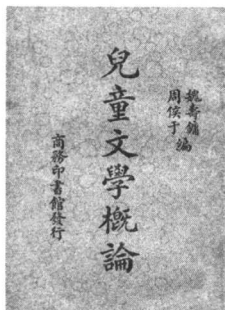 魏壽鏞
周侯于 編
兒童文學概論
商務印書館發行